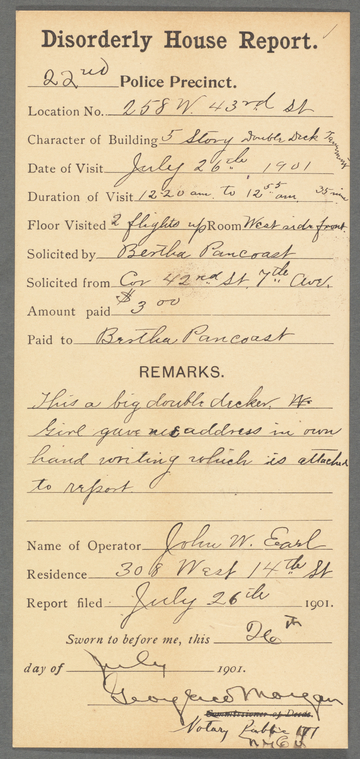 Disorderly House Report.
22nd Police Precinct.
Location No. 258 W. 43rd St
Character of Building 5 Story Double Deck
Date of Visit July 26th, 1901
Duration of Visit 12 20 am to 12 55 am 35 min
Floor Visited 2 flights up Room West side front
Solicited by Bertha Pancoast
Solicited from Cor 42nd St. 7th Ave.
Amount paid $3 00
Paid to Bertha Pancoast
REMARKS.
This a big double decker.
Girl gave me address in own
hand writing which is attached
to report
Name of Operator John W. Earl
Residence 308 West 14th St
Report filed July 26th 1901.
Sworn to before me, this 26th
day of July 1901.
Morgan
Commissioner of Deeds.
Notary Public
N.Y.Co